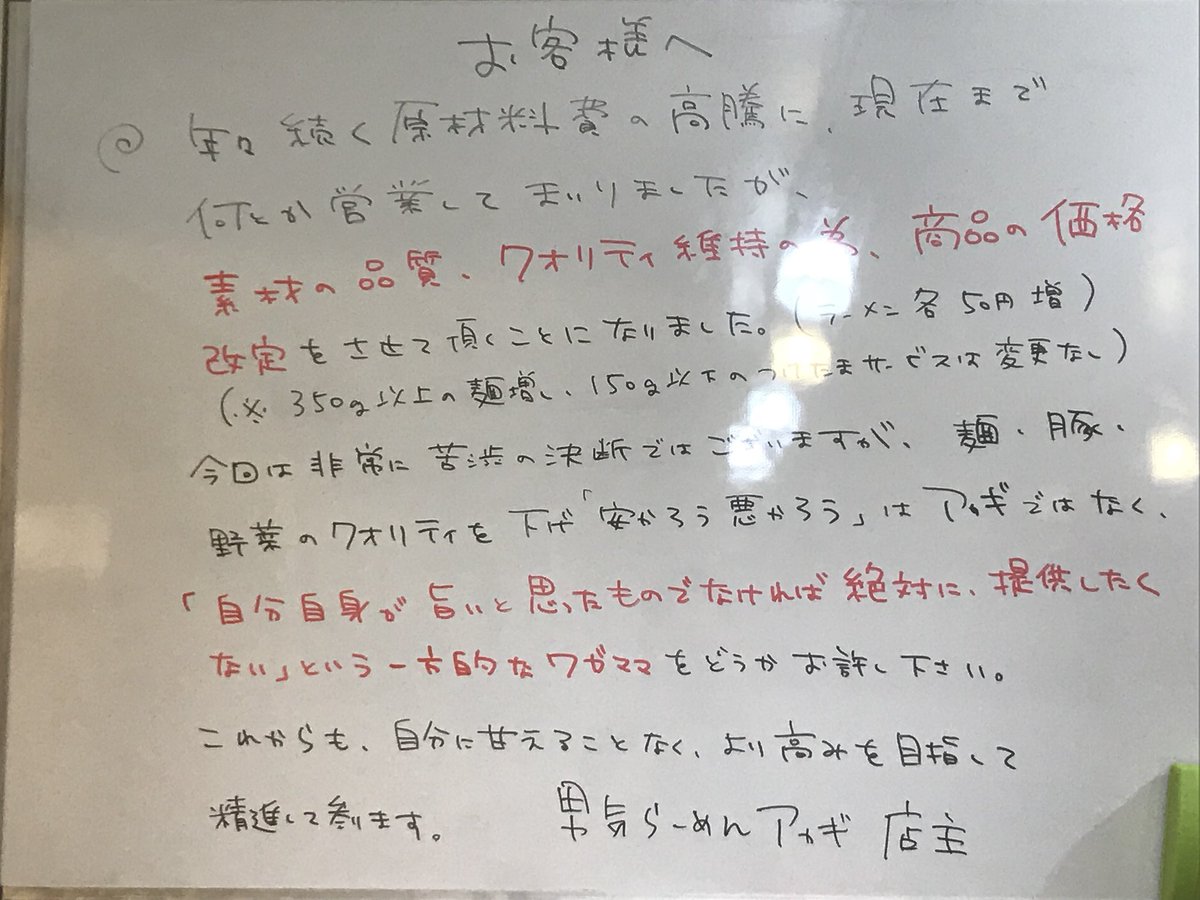 お客様へ
◎ 年々続く原材料費の高騰に、現在まで
何とか営業してまいりましたが、
素材の品質、クオリティ維持の為、商品の価格
改定をさせて頂くことになりました。(ラーメン各50円増)
(※350g以上の麺増し、150g以下のつけたまサービスは変更なし)
今回は非常に苦渋の決断ではございますが、麺・豚・
野菜のクオリティを下げ「安かろう悪かろう」はアカギではなく、
「自分自身が旨いと思ったものでなければ絶対に、提供したく
ない」という一方的なワガママをどうかお許し下さい。
これからも、自分に甘えることなく、より高みを目指して
精進して参ります。 男気らーめんアカギ 店主